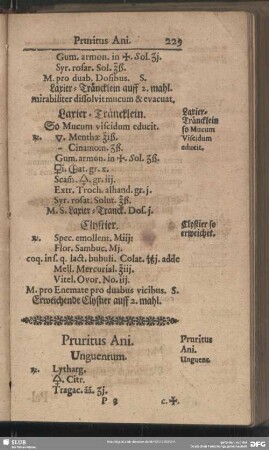 Pruritus Ani. 229
Gum. armon. in 🜊. Sol. ʒj.
Syr. rosar. Sol. ℥ß.
M. pro duab. Dosibus. S.
Laxier-Träncklein auff 2. mahl.
mirabiliter dissolvit mucum & evacuat.
Laxier-Träncklein.
So Mucum viscidum educit.
Laxier-
Träncklein
so Mucum
Viscidum
educit.
℞. ▽. Menthæ ℥iß.
- Cinamom. ℥ß.
Gum. armon. in 🜊. Sol. ʒß.
gr. x.
gr. iij.
Extr. Troch. alhand. gr. j.
Syr. rosat. Solut. ℥ß.
M. S. Laxier-Tranck. Dos. j.
Clystier.
Clystier so
erweichet.
℞. Spec. emollent. Miij:
Flor. Sambuc. Mj.
coq. in s. q. lact. bubuli. Colat. adde
Mell. Mercurial. ℥iij.
Vitel. Ovor. No. iij.
M. pro Enemate pro duabus vicibus. S.
Erweichende Clystier auff 2. mahl.
Pruritus Ani.
Unguentum.
Pruritus
Ani.
Unguent.
℞. Lytharg.
🜍. Citr.
Tragac. āā. ʒj.
P c. 🜊.
SLUB
DFG